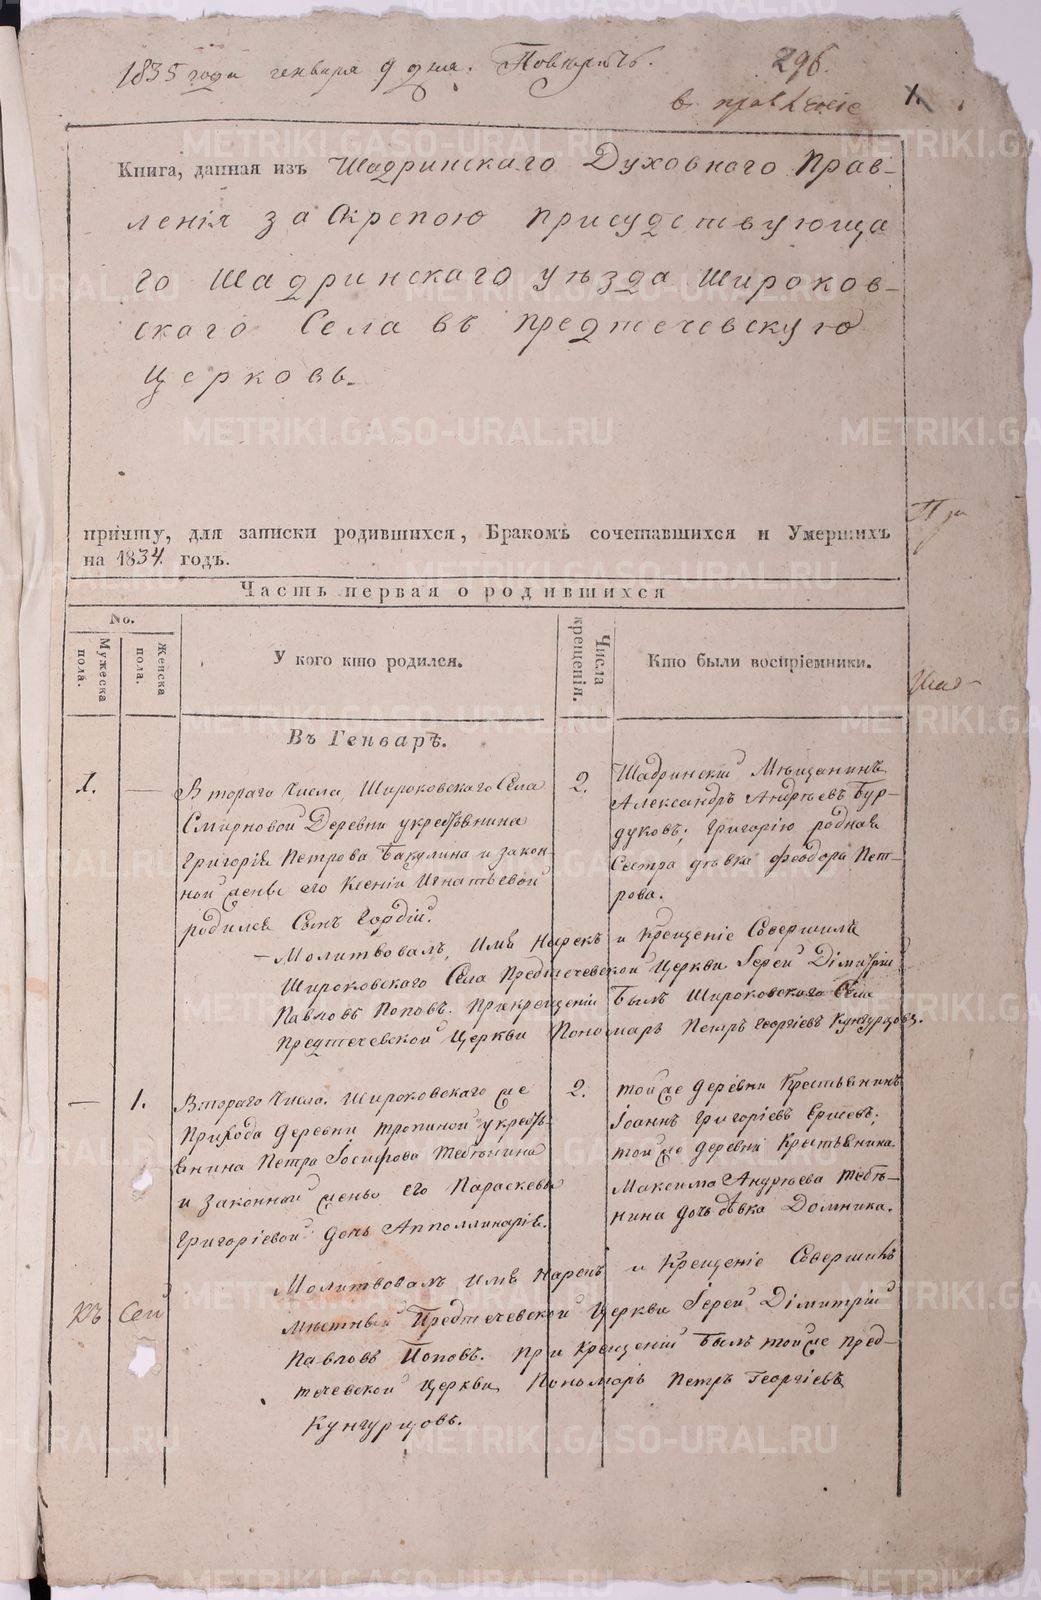 1835 года генваря 9 дня. Повѣрить.
296.
в правленіе
1.
Книга, данная изъ Шадринскаго Духовнаго Прав-
ленія за скрепою присудствующа
го Шадринскаго уѣзда Широков-
скаго Села въ предтечевскую
церковь.
причту, для записки родившихся, Бракомъ сочетавшихся и Умершихъ
на 1834. годъ.
Часть первая о родившихся
No.
Мужеска пола.
Женска пола.
У кого кто родился.
Числа крещенія.
Кто были воспріемники.
Въ Генварѣ.
1.
—
Втораго Числа, Широковскаго Села
Смирновой Деревни у крестьянина
Григорія Петрова Бакулина и закон-
ной жены его Ксеніи Игнатьевой
родился Сынъ Гордій.
2.
Шадринскій Мѣщанинъ
Александръ Андрѣевъ Бур-
дуковъ; Григорію родная
Сестра дѣвка Феодора Пет-
рова.
— Молитвовалъ, Имя Нарекъ и крещеніе Совершилъ
Широковскаго Села Предтечевской Церкви Іерей Димитрій
Павловъ Поповъ. При крещеніи Былъ Широковскаго Села
Предтечевской Церкви Пономарь Петръ Георгіевъ Кунгурцовъ.
—
1.
Втораго Числа. Широковскаго же
Прихода деревни тропиной у кресть-
янина Петра Іосифова Тебѣнина
и законной жены его Параскевы
Григоріевой дочь Апполлинарія.
2.
той же деревни Крестьянинъ
Іоаннъ Григоріевъ Ершевъ;
той же деревни Крестьянина
Максима Андрѣева Тебѣ-
нина дочь дѣвка Домника.
Молитвовалъ имя Нарекъ и Крещеніе Совершилъ
Мѣстный Предтечевской Церкви Іерей Димитрій
Павловъ Поповъ. При Крещеніи Былъ той же пред-
течевской церкви Пономарь Петръ Георгіевъ
Кунгурцовъ.
Къ Сей
Шад-
METRIKI.GASO-URAL.RU